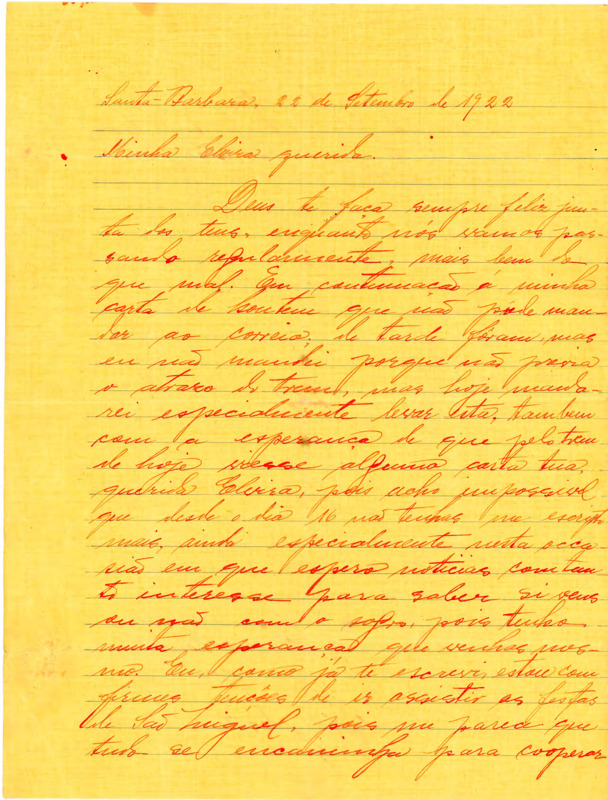 Santa-Barbara, 22 de Setembro de 1922
Minha Elvira querida.
Deus te faça sempre feliz jun-
ta dos teus, enquanto nós vamos pas-
sando regularmente, mais bem do
que mal. Em continuação á minha
carta de hontem que não pude man-
dar ao correio, de tarde fôram, mas
eu não mandei porque não previa
o atrazo do trem, mas hoje manda-
rei especialmente levar esta, tambem
com a esperança de que pelo trem
de hoje viesse alguma carta tua,
querida Elvira, pois acho impossivel
que desde o dia 16 não tenhas me escripto
mais, ainda especialmente nesta occa-
sião em que espero noticias com tan-
to interesse para saber si vens
ou não com o sogro, pois tenho
muita esperança que venhas mes-
mo. Eu, como já te escrevi, estou com
firmes de ir assistir as festas
de São Miguel, pois me parece que
tudo se encaminha para cooperar